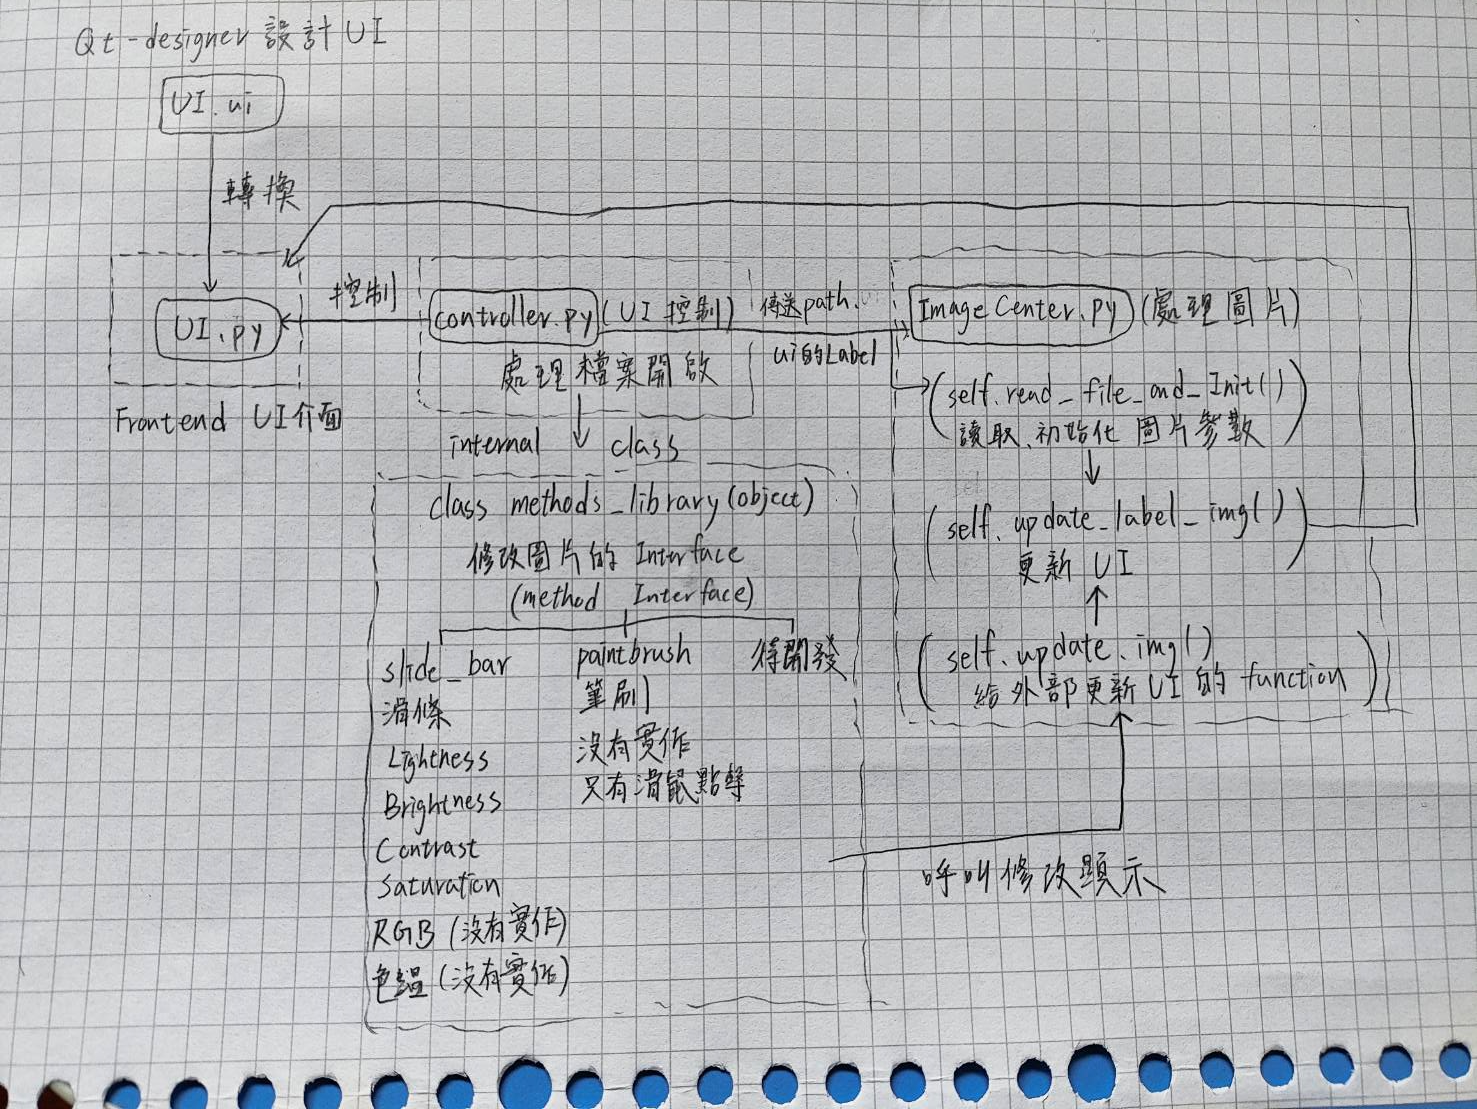 Qt-designer 設計 UI
UI.ui
轉換
控制
UI.py
Frontend UI介面
controller.py (UI 控制)
處理檔案開啟
傳送path.
ui的Label
ImageCenter.py (處理圖片)
(self.read_file_and_Init()
讀取、初始化 圖片參數)
(self.update_label_img()
更新 UI)
(self.update.img()
給外部更新UI的 function)
呼叫修改顯示
internal class
class methods_library(object)
修改圖片的 Interface
(method Interface)
slide_bar
滑條
Lightness
Brightness
Contrast
Saturation
RGB (沒有實作)
色溫 (沒有實作)
paintbrush
筆刷
沒有實作
只有滑鼠點擊
待開發